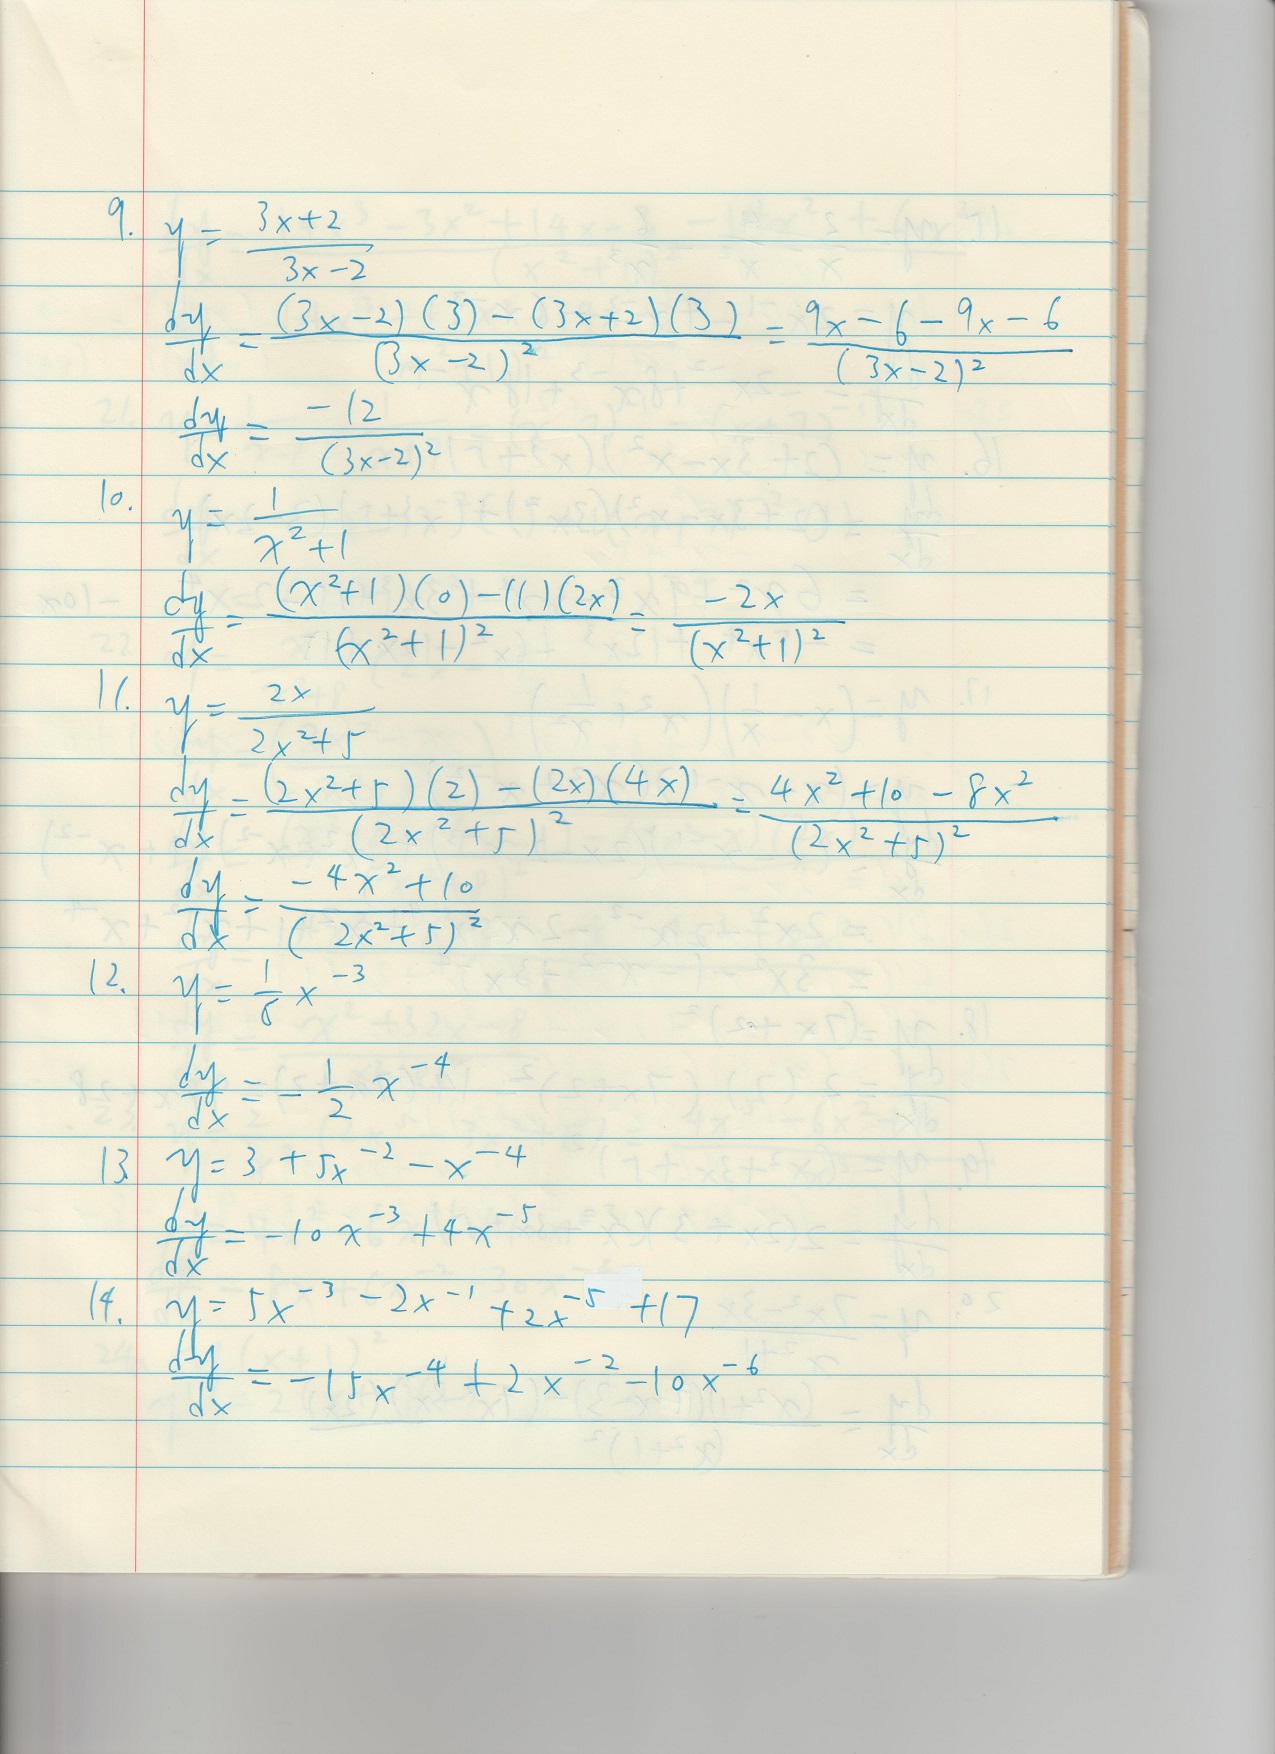 9. y = (3x+2)/(3x-2)
dy/dx = ((3x-2)(3)-(3x+2)(3))/(3x-2)² = (9x-6-9x-6)/(3x-2)²
dy/dx = -12/(3x-2)²
10. y = 1/(x²+1)
dy/dx = ((x²+1)(0)-(1)(2x))/(x²+1)² = -2x/(x²+1)²
11. y = 2x/(2x²+5)
dy/dx = ((2x²+5)(2)-(2x)(4x))/(2x²+5)² = (4x²+10-8x²)/(2x²+5)²
dy/dx = (-4x²+10)/(2x²+5)²
12. y = 1/6 x⁻³
dy/dx = -1/2 x⁻⁴
13. y = 3+5x⁻²-x⁻⁴
dy/dx = -10x⁻³+4x⁻⁵
14. y = 5x⁻³-2x⁻¹+2x⁻⁵+17
dy/dx = -15x⁻⁴+2x⁻²-10x⁻⁶